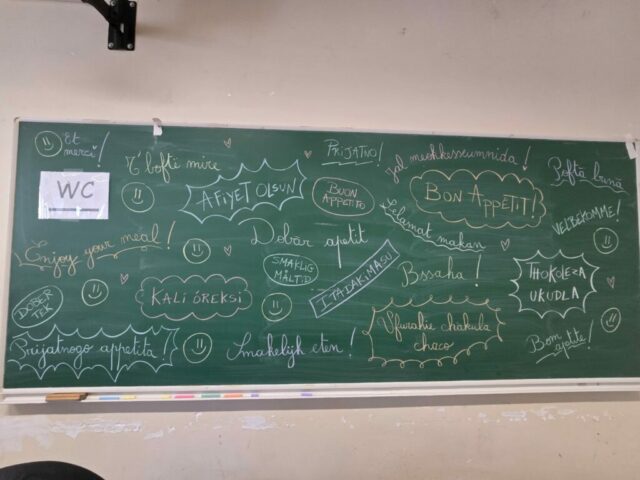 Et
merci!
WC
T'bofti mire
AFIYET OLSUN
PRIJATNO!
BUON
APPETITO
Jal meokkesseumnida!
BON APPETIT!
Poftă bună
VELBEKOMME!
Enjoy your meal!
Dobar apetit
Selamat makan
SMAKLIG
MÅLTID
ITADAKIMASU
Bssaha!
THOKOLEZA
UKUDLA
DOBER
TEK
KALI ÓREKSI
Prijatnogo appetita!
Smakelijk eten!
Ufurahie chakula
chaco
Bom
apetite!